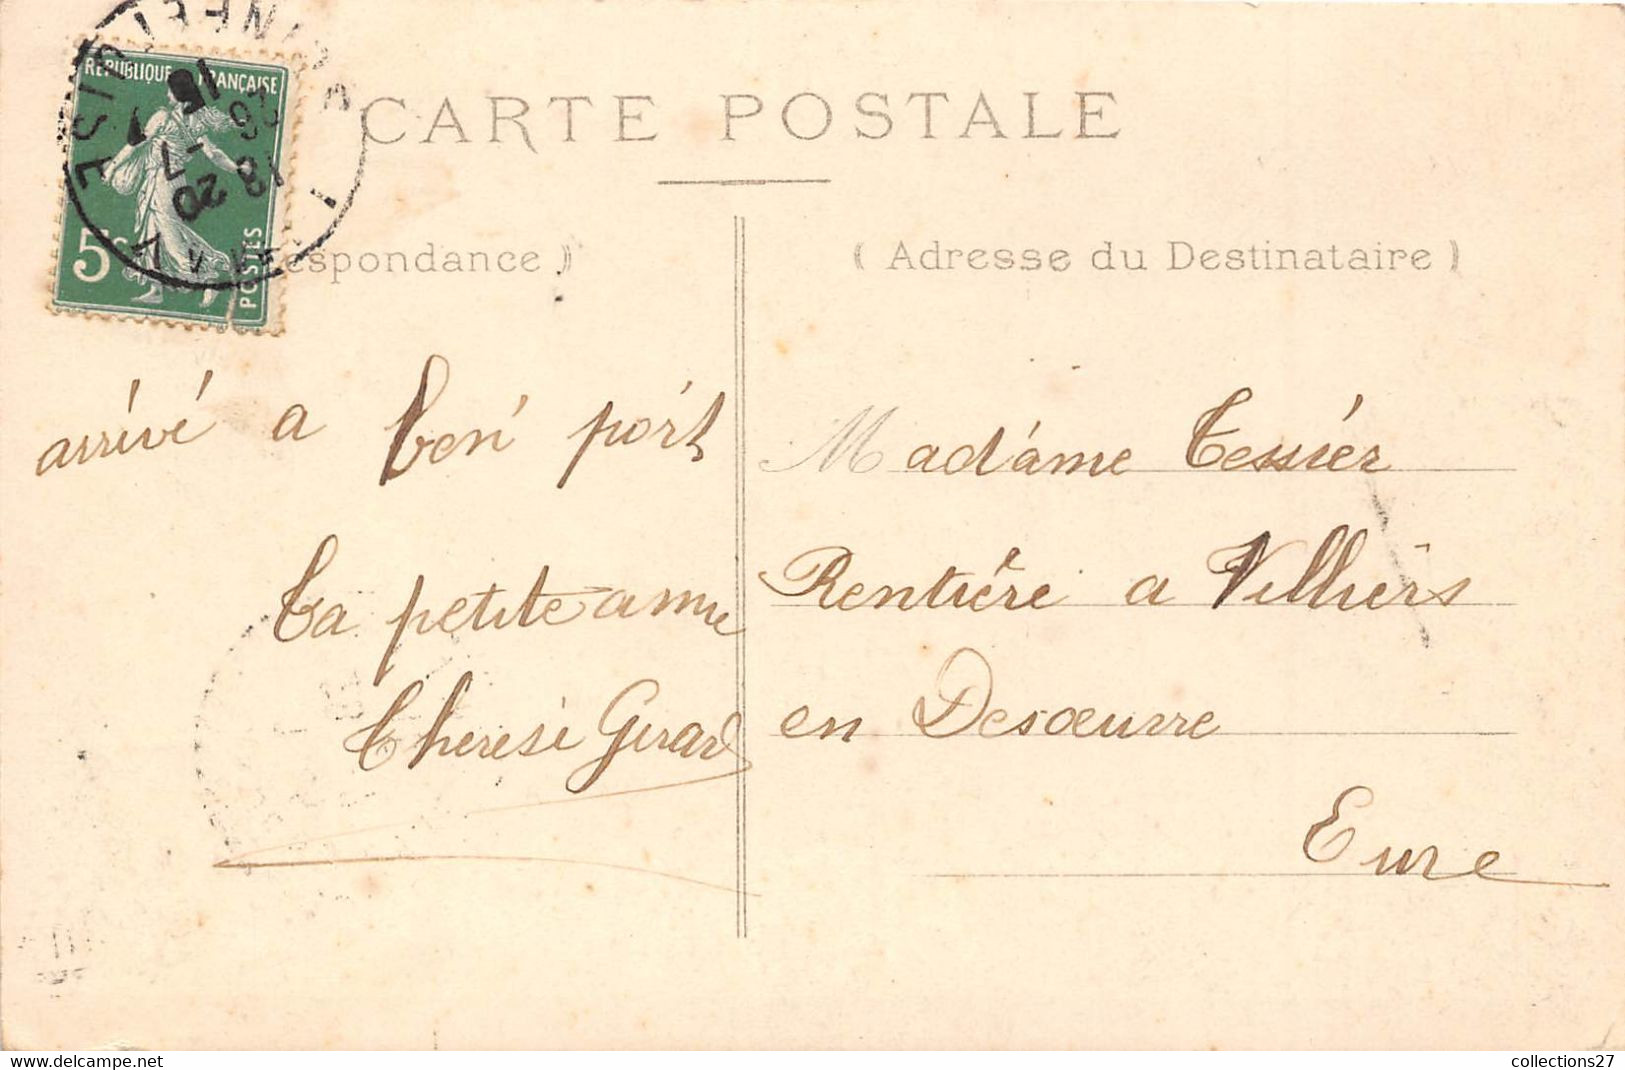 RÉPUBLIQUE FRANÇAISE
5c
POSTES
18 20
-7
16
CARTE POSTALE
espondance )
( Adresse du Destinataire )
arrivé a bon port
Ta petite amie
Therese Girard
Madame Tessier
Rentière a Villiers
en Desœuvre
Eure
collections27